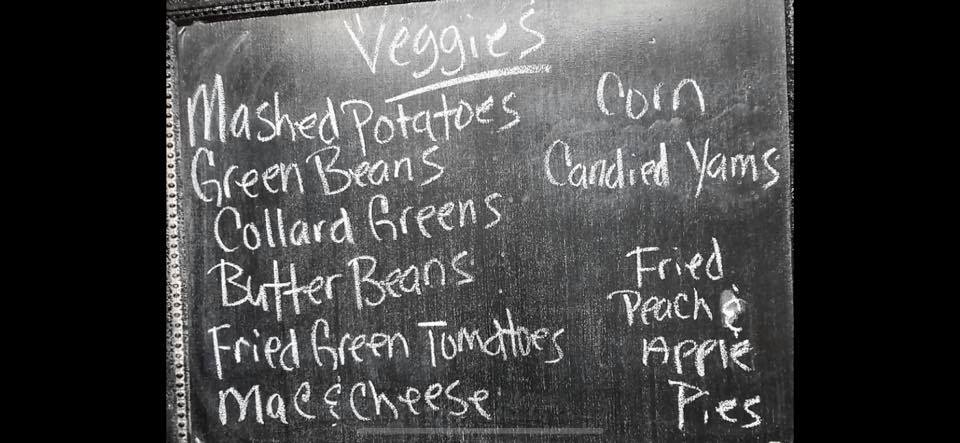 Veggies
Mashed Potatoes
Green Beans
Collard Greens
Butter Beans
Fried Green Tomatoes
Mac & Cheese
Corn
Candied Yams
Fried
Peach &
Apple
Pies